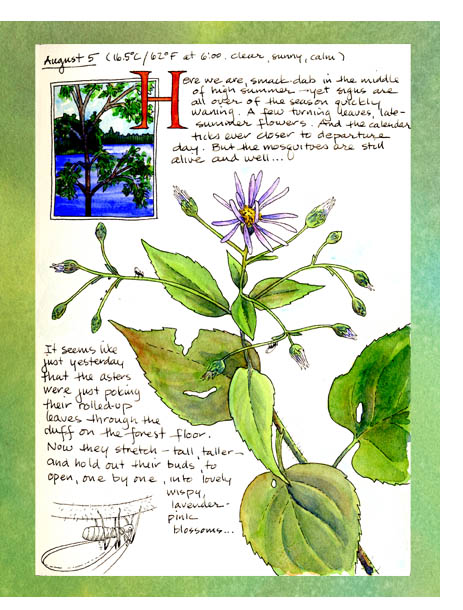 August 5 (16.5°C/62°F at 6:00. clear, sunny, calm)
Here we are, smack-dab in the middle
of high summer – yet signs are
all over of the season quickly
waning. A few turning leaves, late-
summer flowers. And the calendar
ticks ever closer to departure
day. But the mosquitoes are still
alive and well...
It seems like
just yesterday
that the asters
were just poking
their rolled-up
leaves through the
duff on the forest floor.
Now they stretch – tall, taller –
and hold out their buds to
open, one by one, into lovely
wispy,
lavender-
pink
blossoms...